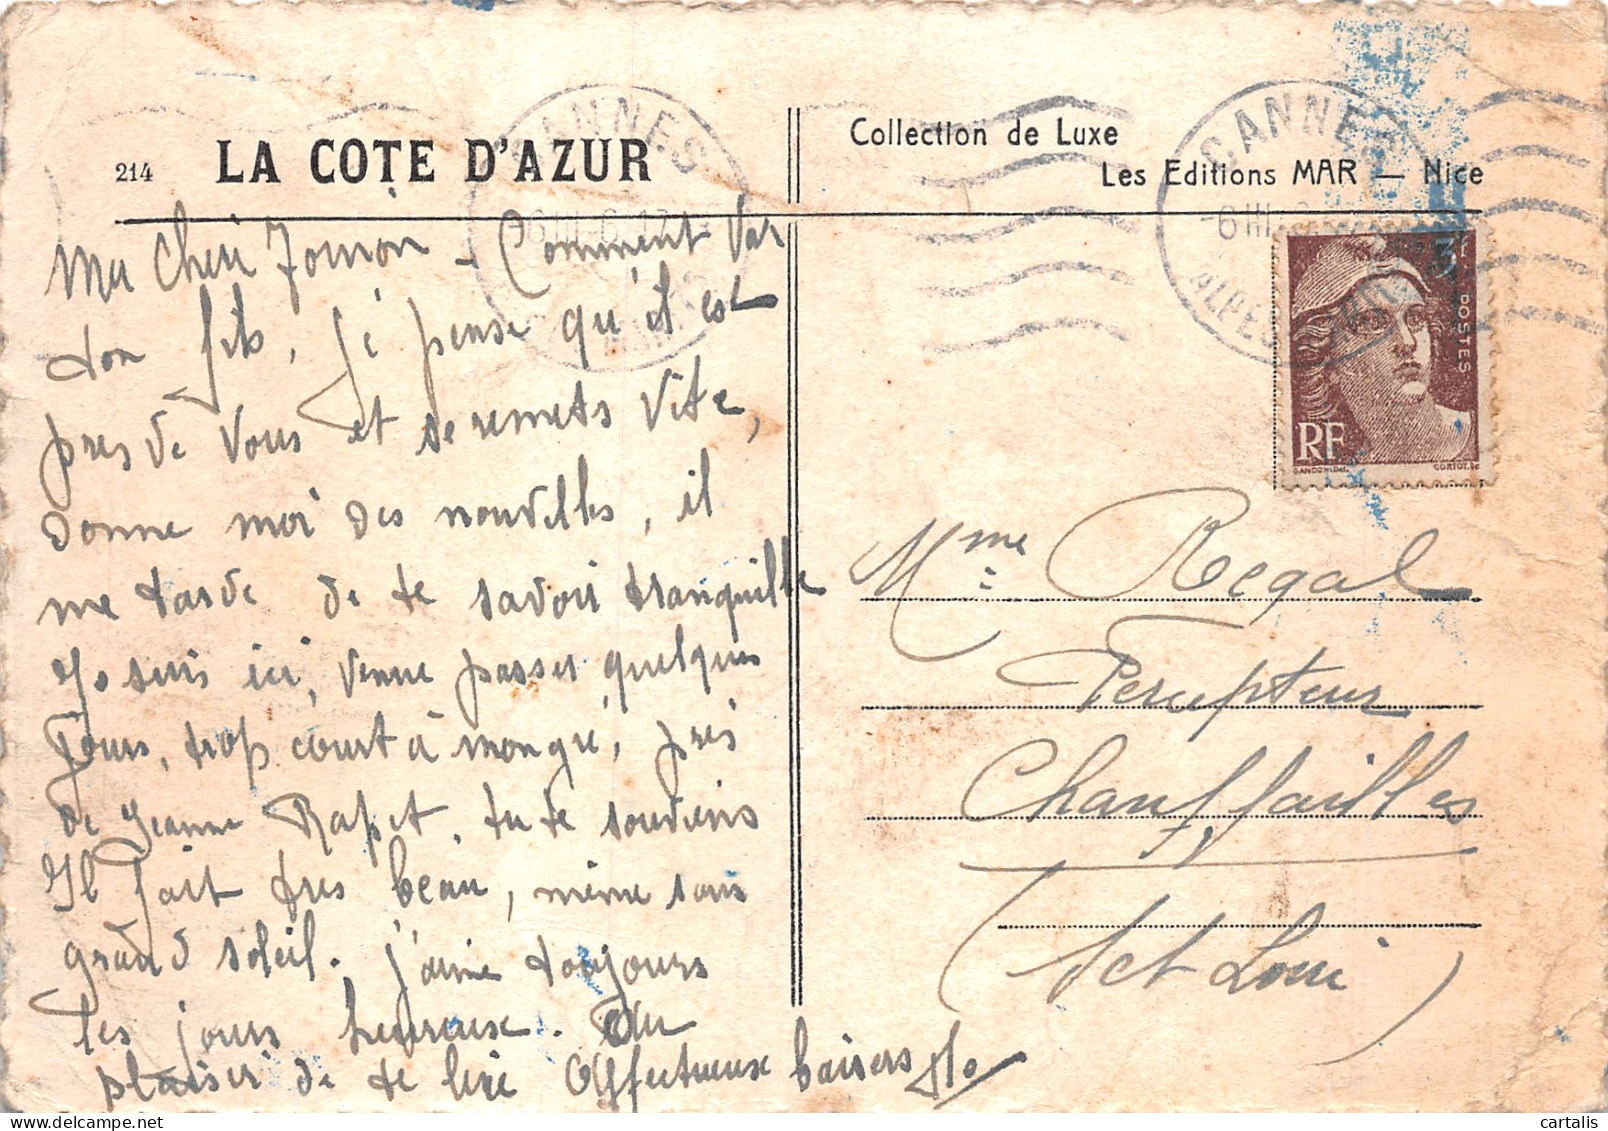 214 LA COTE D'AZUR
Collection de Luxe
Les Editions MAR — Nice
CANNES
ALPES
CANNES
-6 III
ALPES
POSTES
RF
Ma Cheri - Comment Va
ton fils, je pense qu'il est
pres de Vous et se remets Vite,
donne moi des nouvelles, il
me tarde de te savoir tranquille
Je suis ici, venue passer quelques
jours, trop court à mon gré, près
de Jeanne Rapet, tu te souviens
Il fait tres beau, même sans
grand soleil. j'aime toujours
les jours heureuse. Au
plaisir de te lire Affectueux baisers
Mme Regal
Percepteur
Chauffailles
(Set Loir)
cartalis